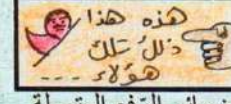 هذه هذا
ذلك تلك
هؤلاء ...